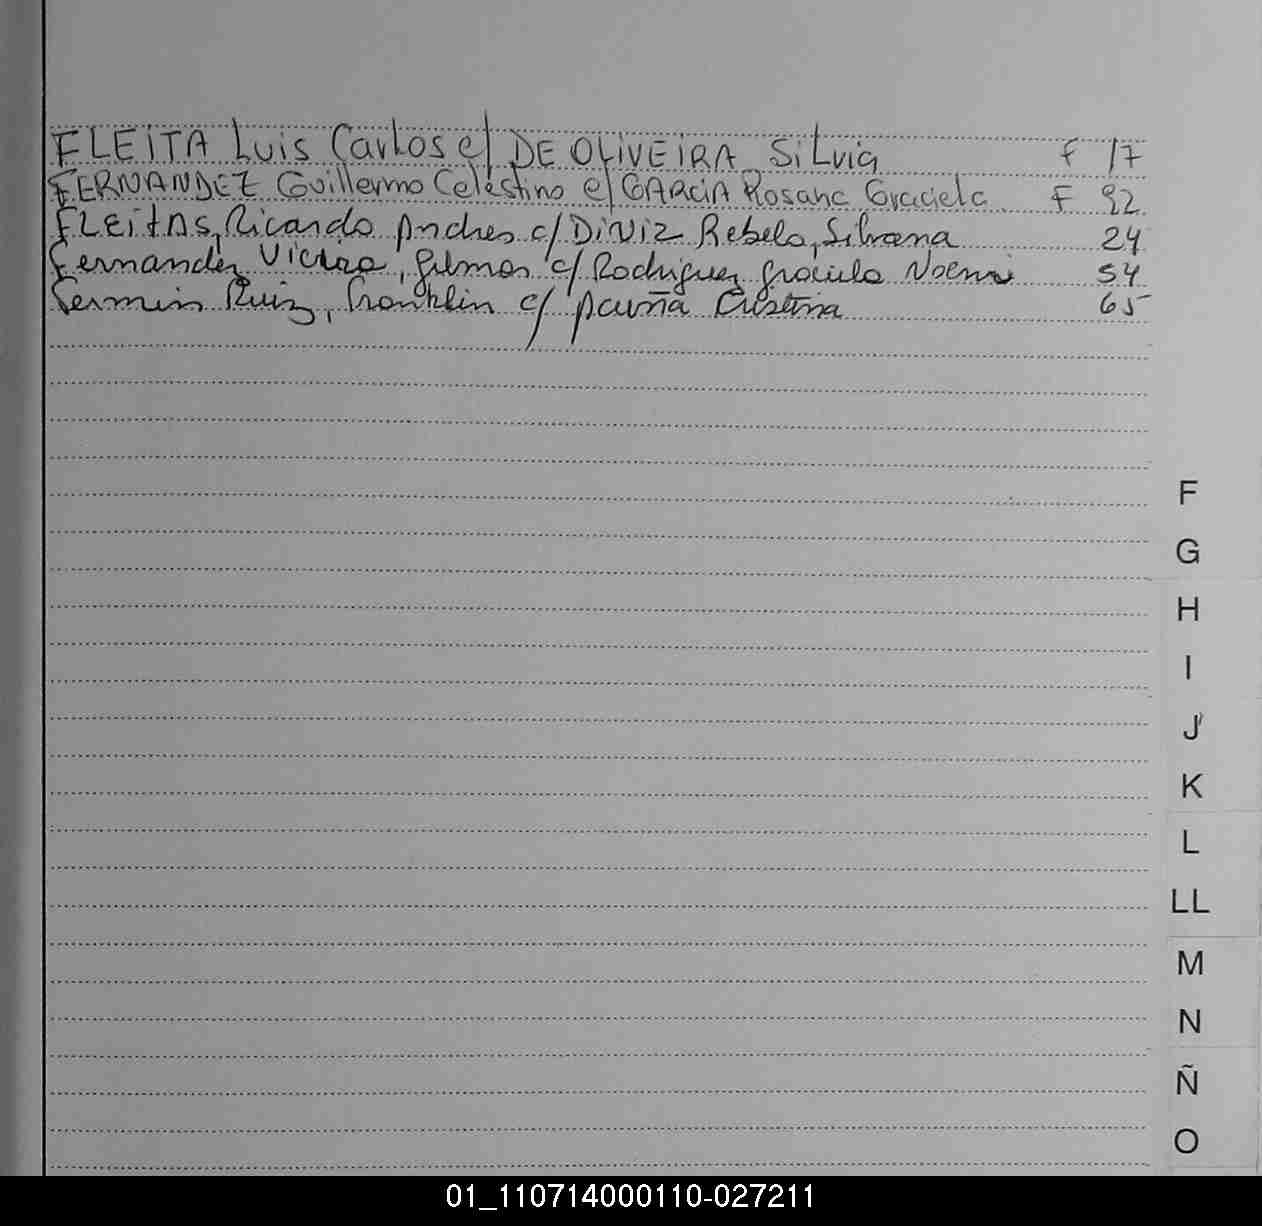 FLEITA Luis Carlos c/ DE OLIVEIRA Silvia F 17
FERNANDEZ Guillermo Celestino c/ GARCIA Rosana Graciela F 92
FLEITAS, Ricardo Andres c/ DiViz Rebelo, Silvana 24
Fernandez Vieira, Gilmar c/ Rodriguez Graciela Noemi 54
Fermin Ruiz, Franklin c/ Acuña Cristina 65
F
G
H
I
J
K
L
LL
M
N
Ñ
O
01_110714000110-027211